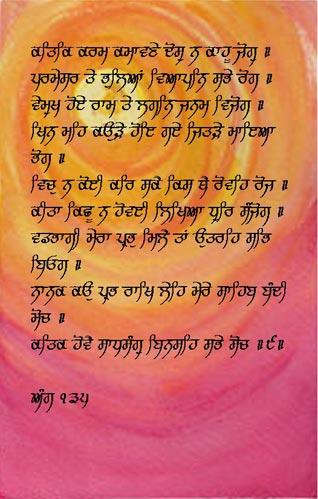 ਕਤਿਕਿ ਕਰਮ ਕਮਾਵਣੇ ਦੋਸੁ ਨ ਕਾਹੂ ਜੋਗੁ ॥
ਪਰਮੇਸਰ ਤੇ ਭੁਲਿਆਂ ਵਿਆਪਨਿ ਸਭੇ ਰੋਗ ॥
ਵੇਮੁਖ ਹੋਏ ਰਾਮ ਤੇ ਲਗਨਿ ਜਨਮ ਵਿਜੋਗ ॥
ਖਿਨ ਮਹਿ ਕਉੜੇ ਹੋਇ ਗਏ ਜਿਤੜੇ ਮਾਇਆ
ਭੋਗ ॥
ਵਿਚੁ ਨ ਕੋਈ ਕਰਿ ਸਕੈ ਕਿਸ ਥੈ ਰੋਵਹਿ ਰੋਜ ॥
ਕੀਤਾ ਕਿਛੂ ਨ ਹੋਵਈ ਲਿਖਿਆ ਧੁਰਿ ਸੰਜੋਗ ॥
ਵਡਭਾਗੀ ਮੇਰਾ ਪ੍ਰਭੁ ਮਿਲੈ ਤਾਂ ਉਤਰਹਿ ਸਭਿ
ਬਿਓਗ ॥
ਨਾਨਕ ਕਉ ਪ੍ਰਭ ਰਾਖਿ ਲੇਹਿ ਮੇਰੇ ਸਾਹਿਬ ਬੰਦੀ
ਮੋਚ ॥
ਕਤਿਕ ਹੋਵੈ ਸਾਧਸੰਗੁ ਬਿਨਸਹਿ ਸਭੇ ਸੋਚ ॥੯॥
ਅੰਗ ੧੩੫